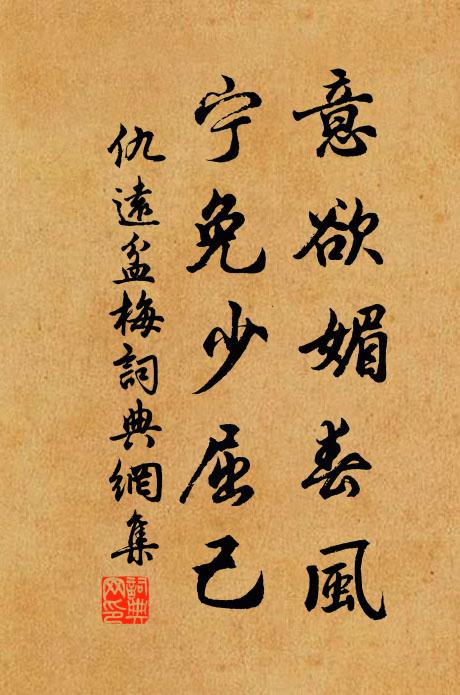 意欲媚春風
宁免少屈己
仇遠盆梅詞典網集
詞典網印